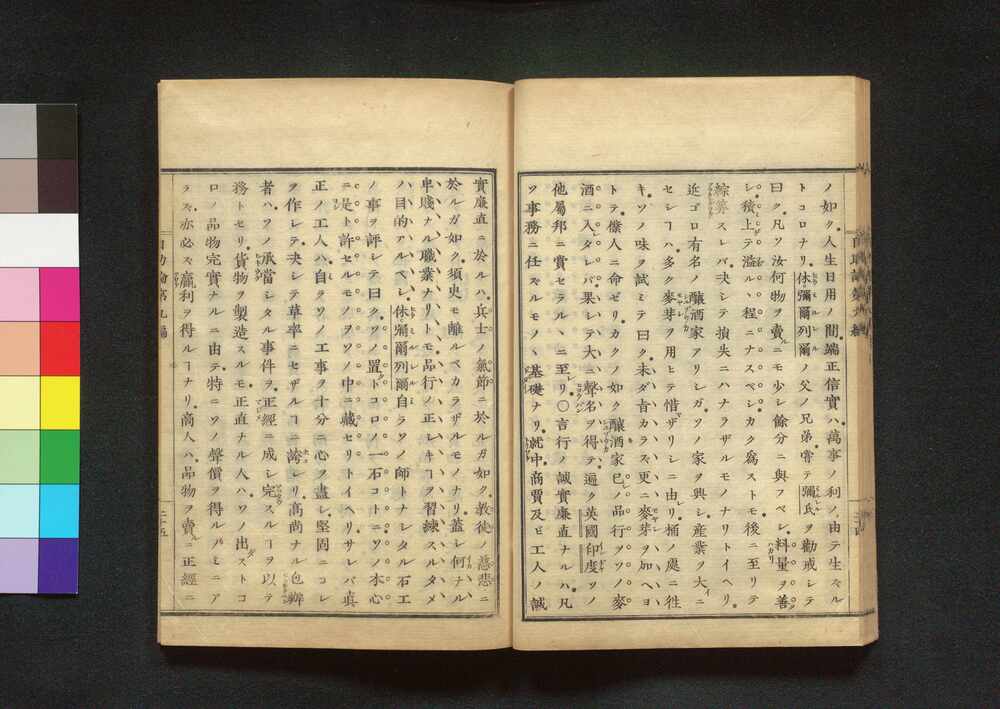 ノ如ク人生日用ノ間端正信實ハ萬事ノ利ノ由テ生ズル
トコロナリ休彌爾列爾ノ父ノ兄弟嘗テ彌氏ヲ勸戒シテ
曰ク凡ソ汝何物ヲ賣ルニモ少シ餘分ニ與フベシ料量ヲ善
シ積上テ溢ルヽ程ニナスベシカク爲ストモ後ニ至リテ
綜算スレバ決シテ損失ニハナラザルモノナリトイヘリ
近ゴロ有名ノ釀酒家アリシガソノ家ヲ興シ産業ヲ大ニ
セシヿハ多ク麥芽ヲ用ヒテ惜マザリシニ由レリ桶ノ處ニ徃
キソノ味ヲ試ミテ曰ク未ダ旨カラズ更ニ麥芽ヲ加ヘヨ
トテ僕人ニ命ゼリカクノ如ク釀酒家已ノ品行ヲソノ麥
酒ニ入タレバ果シテ大ニ聲名ヲ得テ遍ク英國印度ソノ
他屬邦ニ賣セラルヽニ至リ〇言行ノ誠實廉直ナルハ凡
ソ事務ニ任ズルモノヽ基礎ナリ就中商賈及ビ工人ノ誠
實廉直ニ於ルハ兵士ノ氣節ニ於ルガ如ク教徒ノ慈悲ニ
於ルガ如ク須臾モ離ルベカラザルモノナリ蓋シ何ナル
卑賤ナル職業ナリトモ品行ノ正シキヿヲ習練スルタメ
ハ目的アルベシ休彌爾列爾自ラソノ師トナシタル石工
ノ事ヲ評シテ曰クソノ置トコロノ一石コトニソノ本心
ニ是ト許セルモノヲソノ中ニ藏セリトイヘリサレバ眞
正ノ工人ハ自ラソノ工事ヲ十分ニ心ヲ盡シ堅固ニコレ
ヲ作レテ決シテ草率ニセザルヿニ誇レリ高尚ナル包辦
者ハソノ承當シタル事件ヲ正經ニ成シ完スルヿヲ以テ
務トセリ貨物ヲ製造スルモ正直ナル人ハソノ出ストコ
ロノ品物完實ナルニ由テ特ニソノ聲價ヲ得ルノミニア
ラズ亦必ズ贏利ヲ得ルヿナリ商人ハ品物ヲ賣ニ正經ニ
自助論第九編
二十五